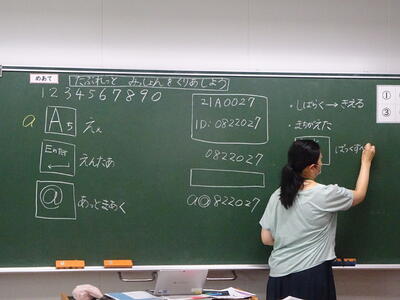 めあて
たぶれっと みっしょんをくりあしよう
1234567890
a A ち えぇ
Enter えんたあ
@ あっとまあく
21A0027
ID:0822027
0822027
a@822027
・しばらく→きえる
・まちがえた
ばっくすぺ
①
③